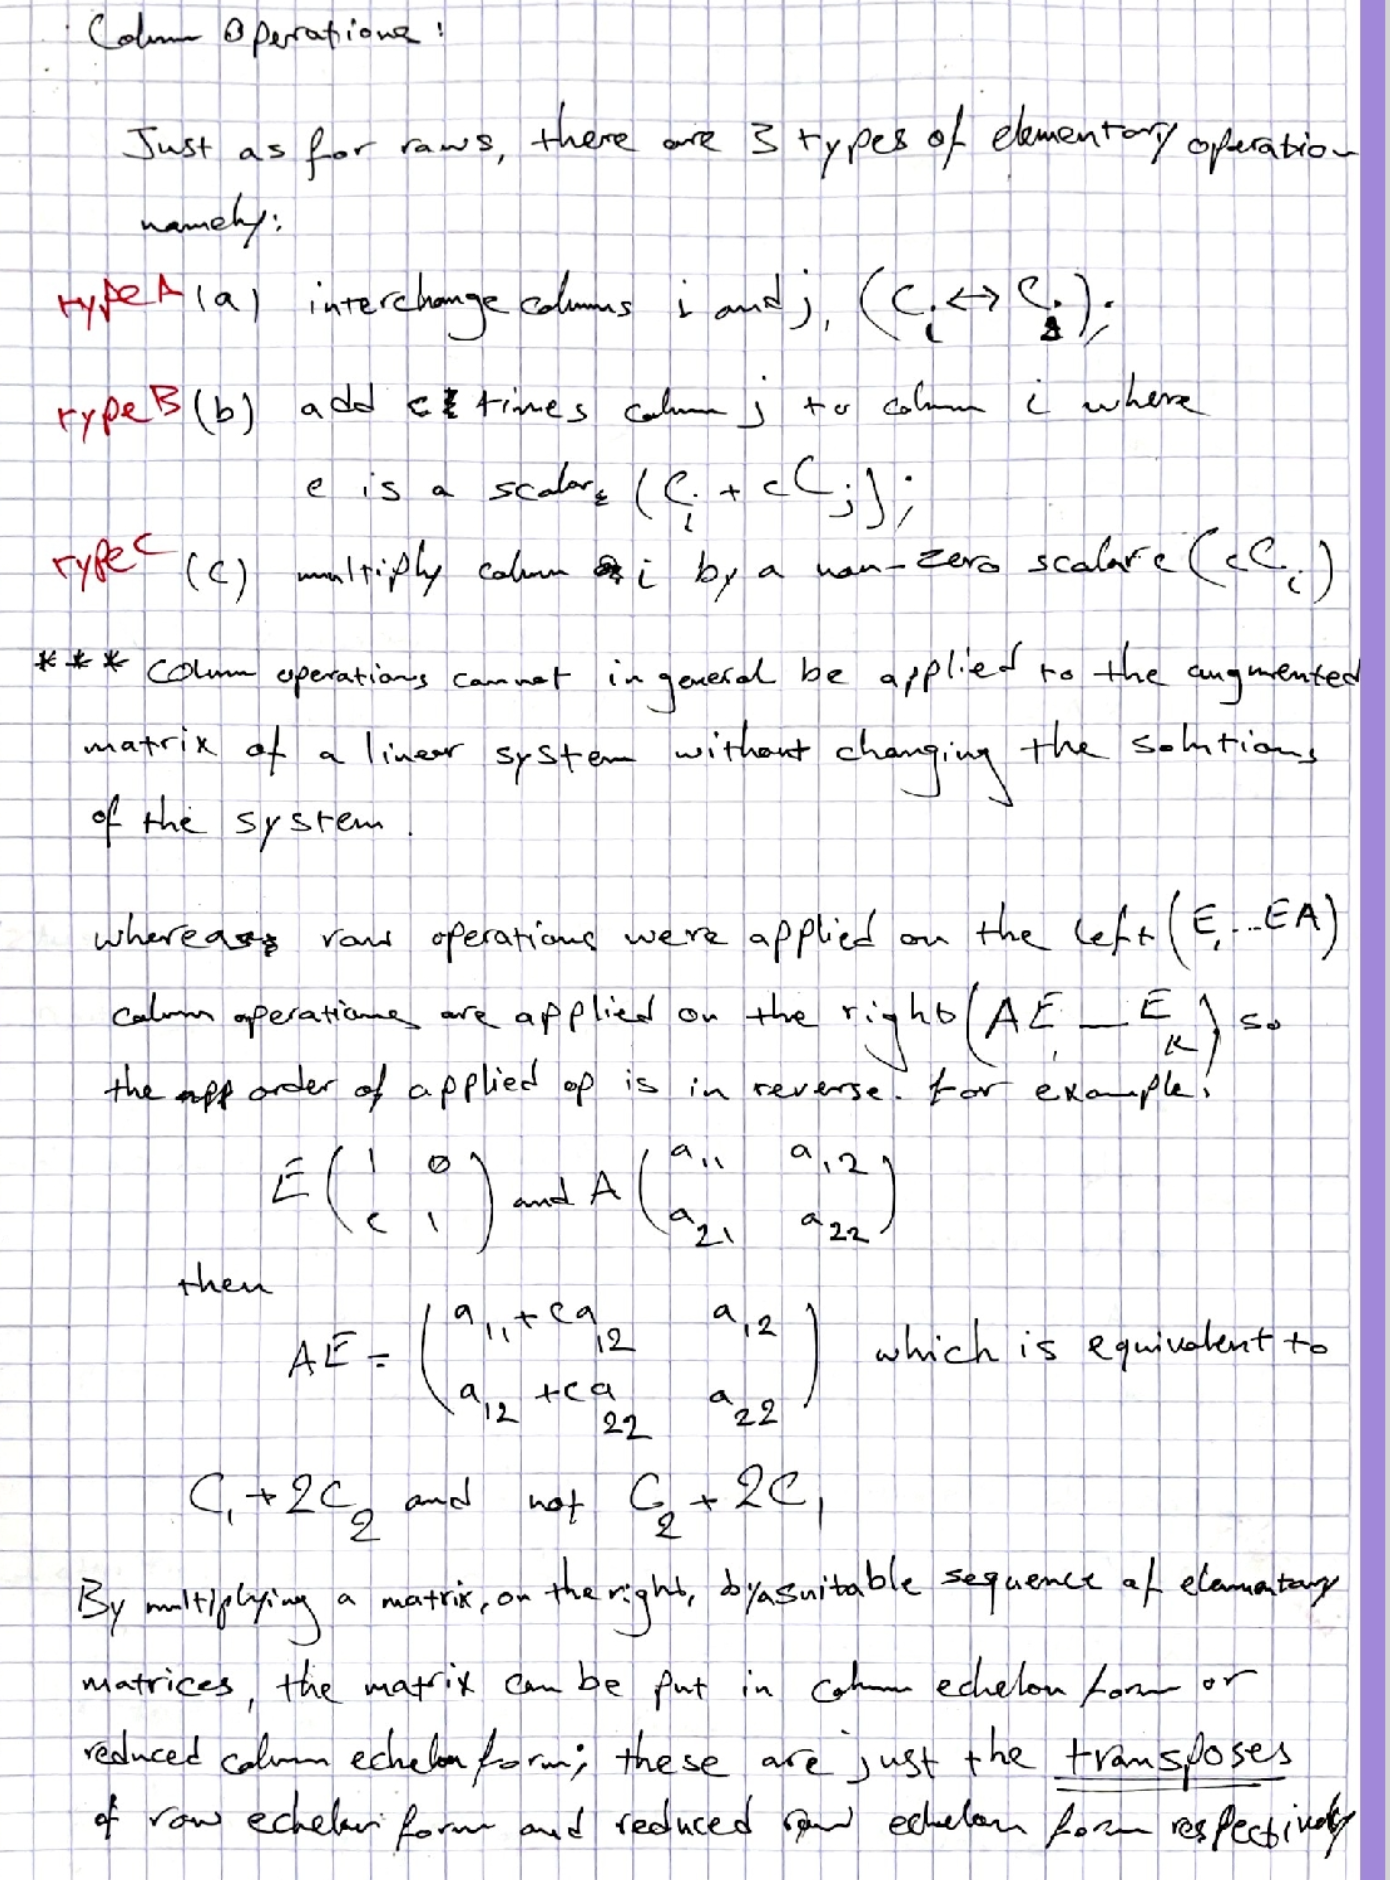 Column Operations:
Just as for raws, there are 3 types of elementary operation
namely:
type A (a) interchange columns i and j, (C_i ↔ C_j);
type B (b) add c times column j to column i where
c is a scalar, (C_i + cC_j);
type C (c) multiply column i by a non-zero scalar c (cC_i)
*** Column operations cannot in general be applied to the augmented
matrix of a linear system without changing the solutions
of the system.
whereas row operations were applied on the left (E_1...EA)
column operations are applied on the right (AE_1 — E_k) so
the order of applied op is in reverse. for example:
E ( 1 0
c 1 ) and A ( a_11 a_12
a_21 a_22 )
then
AE = ( a_11 + ca_12 a_12
a_12 + ca_22 a_22 ) which is equivalent to
C_1 + 2C_2 and not C_2 + 2C_1
By multiplying a matrix, on the right, by a suitable sequence of elementary
matrices, the matrix can be put in column echelon form or
reduced column echelon form; these are just the transposes
of row echelon form and reduced row echelon form respectively